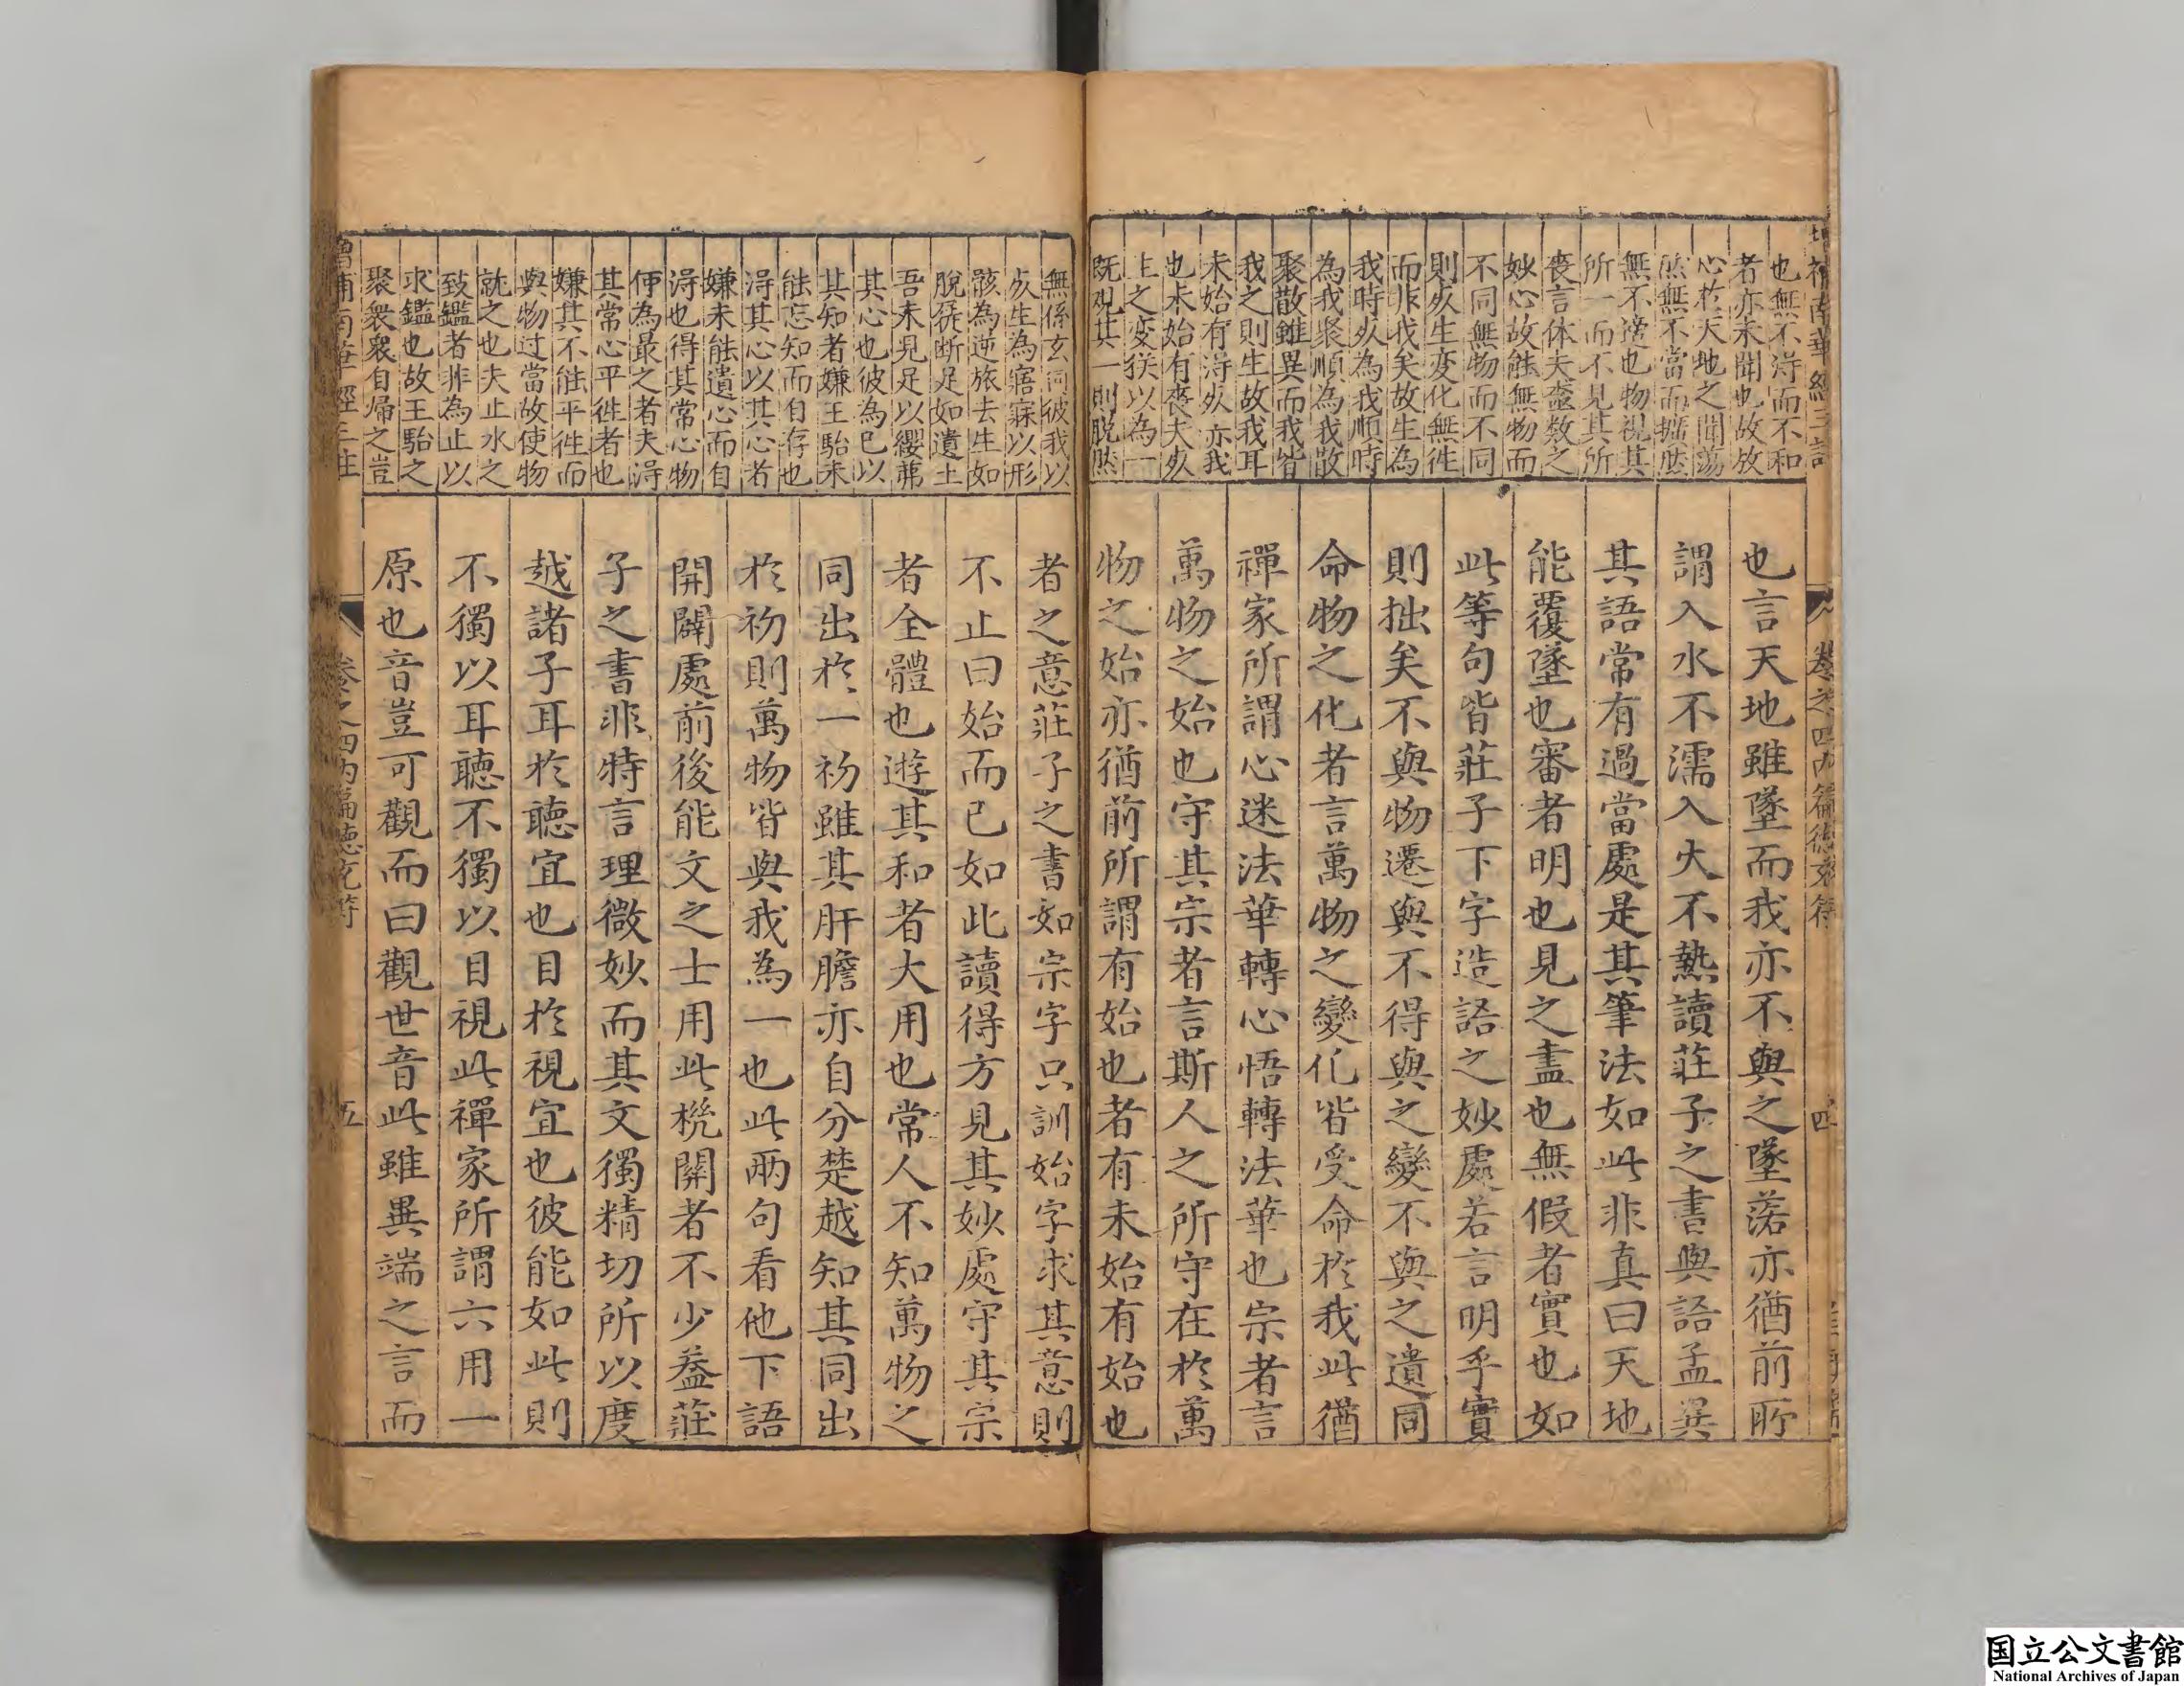 也無不淂而不和
者亦未聞也故放
心於天地之間蕩
然無不當而擴然
無不適也物視其
所一而不見其所
喪言体夫極数之
妙心故能無物而
不同無物而不同
則死生変化無徃
而非我矣故生為
我時死為我順時
為我聚順為我散
聚散雖異而我皆
我之則生故我耳
未始有淂死亦我
也未始有喪夫死
生之変猶以為一
既覩其一則脱然
也言天地雖墜而我亦不與之墜落亦猶前所
謂入水不濡入火不熱讀莊子之書與語孟異
其語常有過當處是其筆法如此非真曰天地
能覆墜也審者明也見之盡也無假者實也如
此等句皆莊子下字造語之妙處若言明乎實
則拙矣不與物遷與不得與之變不與之遺同
命物之化者言萬物之變化皆受命於我此猶
禪家所謂心迷法華轉心悟轉法華也宗者言
萬物之始也守其宗者言斯人之所守在於萬
物之始亦猶前所謂有始也者有未始有始也
無係玄同彼我以
死生為寤寐以形
骸為逆旅去生如
脫屣断足如遺土
吾未見足以纓茀
其心也彼為己以
其知者嫌王駘未
能忘知而自存也
淂其心以其心者
嫌未能遺心而自
淂也得其常心物
何為最之者夫淂
其常心平徃者也
嫌其不能平徃而
與物过當故使物
就之也夫止水之
致鑑者非為止以
求鑑也故王駘之
聚衆衆自歸之豈
者之意莊子之書如宗字只訓始字求其意則
不止曰始而已如此讀得方見其妙處守其宗
者全體也遊其和者大用也常人不知萬物之
同出於一初雖其肝膽亦自分楚越知其同出
於初則萬物皆與我為一也此兩句看他下語
開闢處前後能文之士用此機關者不少蓋莊
子之書非特言理微妙而其文獨精切所以度
越諸子耳於聽宜也目於視宜也彼能如此則
不獨以耳聽不獨以目視此禪家所謂六用一
原也音豈可觀而曰觀世音此雖異端之言而
卷之四內篇德充符
五
国立公文書館
National Archives of Japan